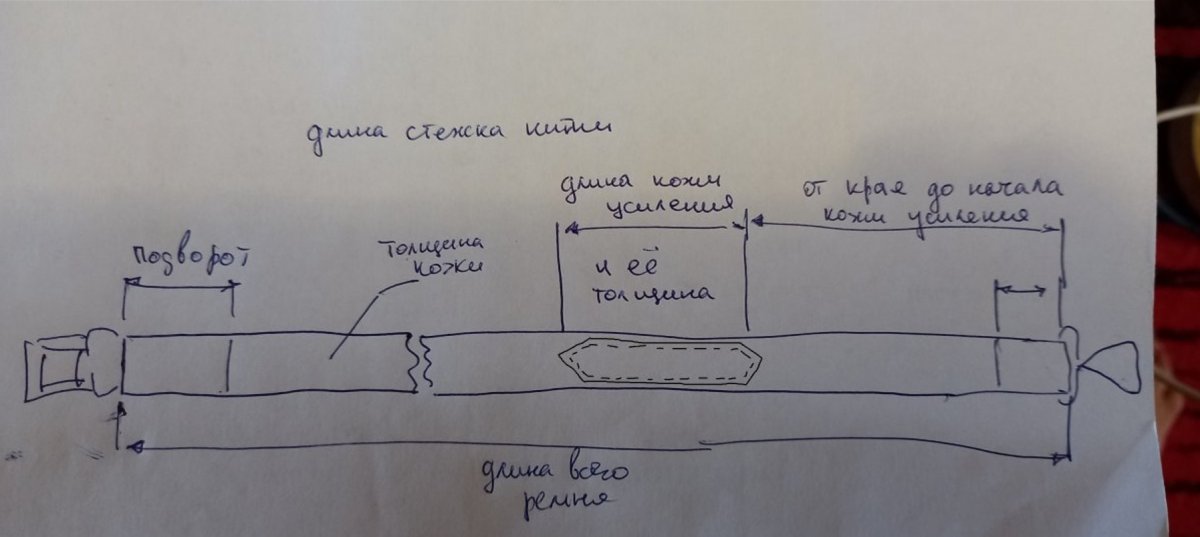 длина стежка нитки
длина кожи
усиления
от края до начала
кожи усиления
подворот
толщина
кожи
и её
толщина
длина всего
ремня